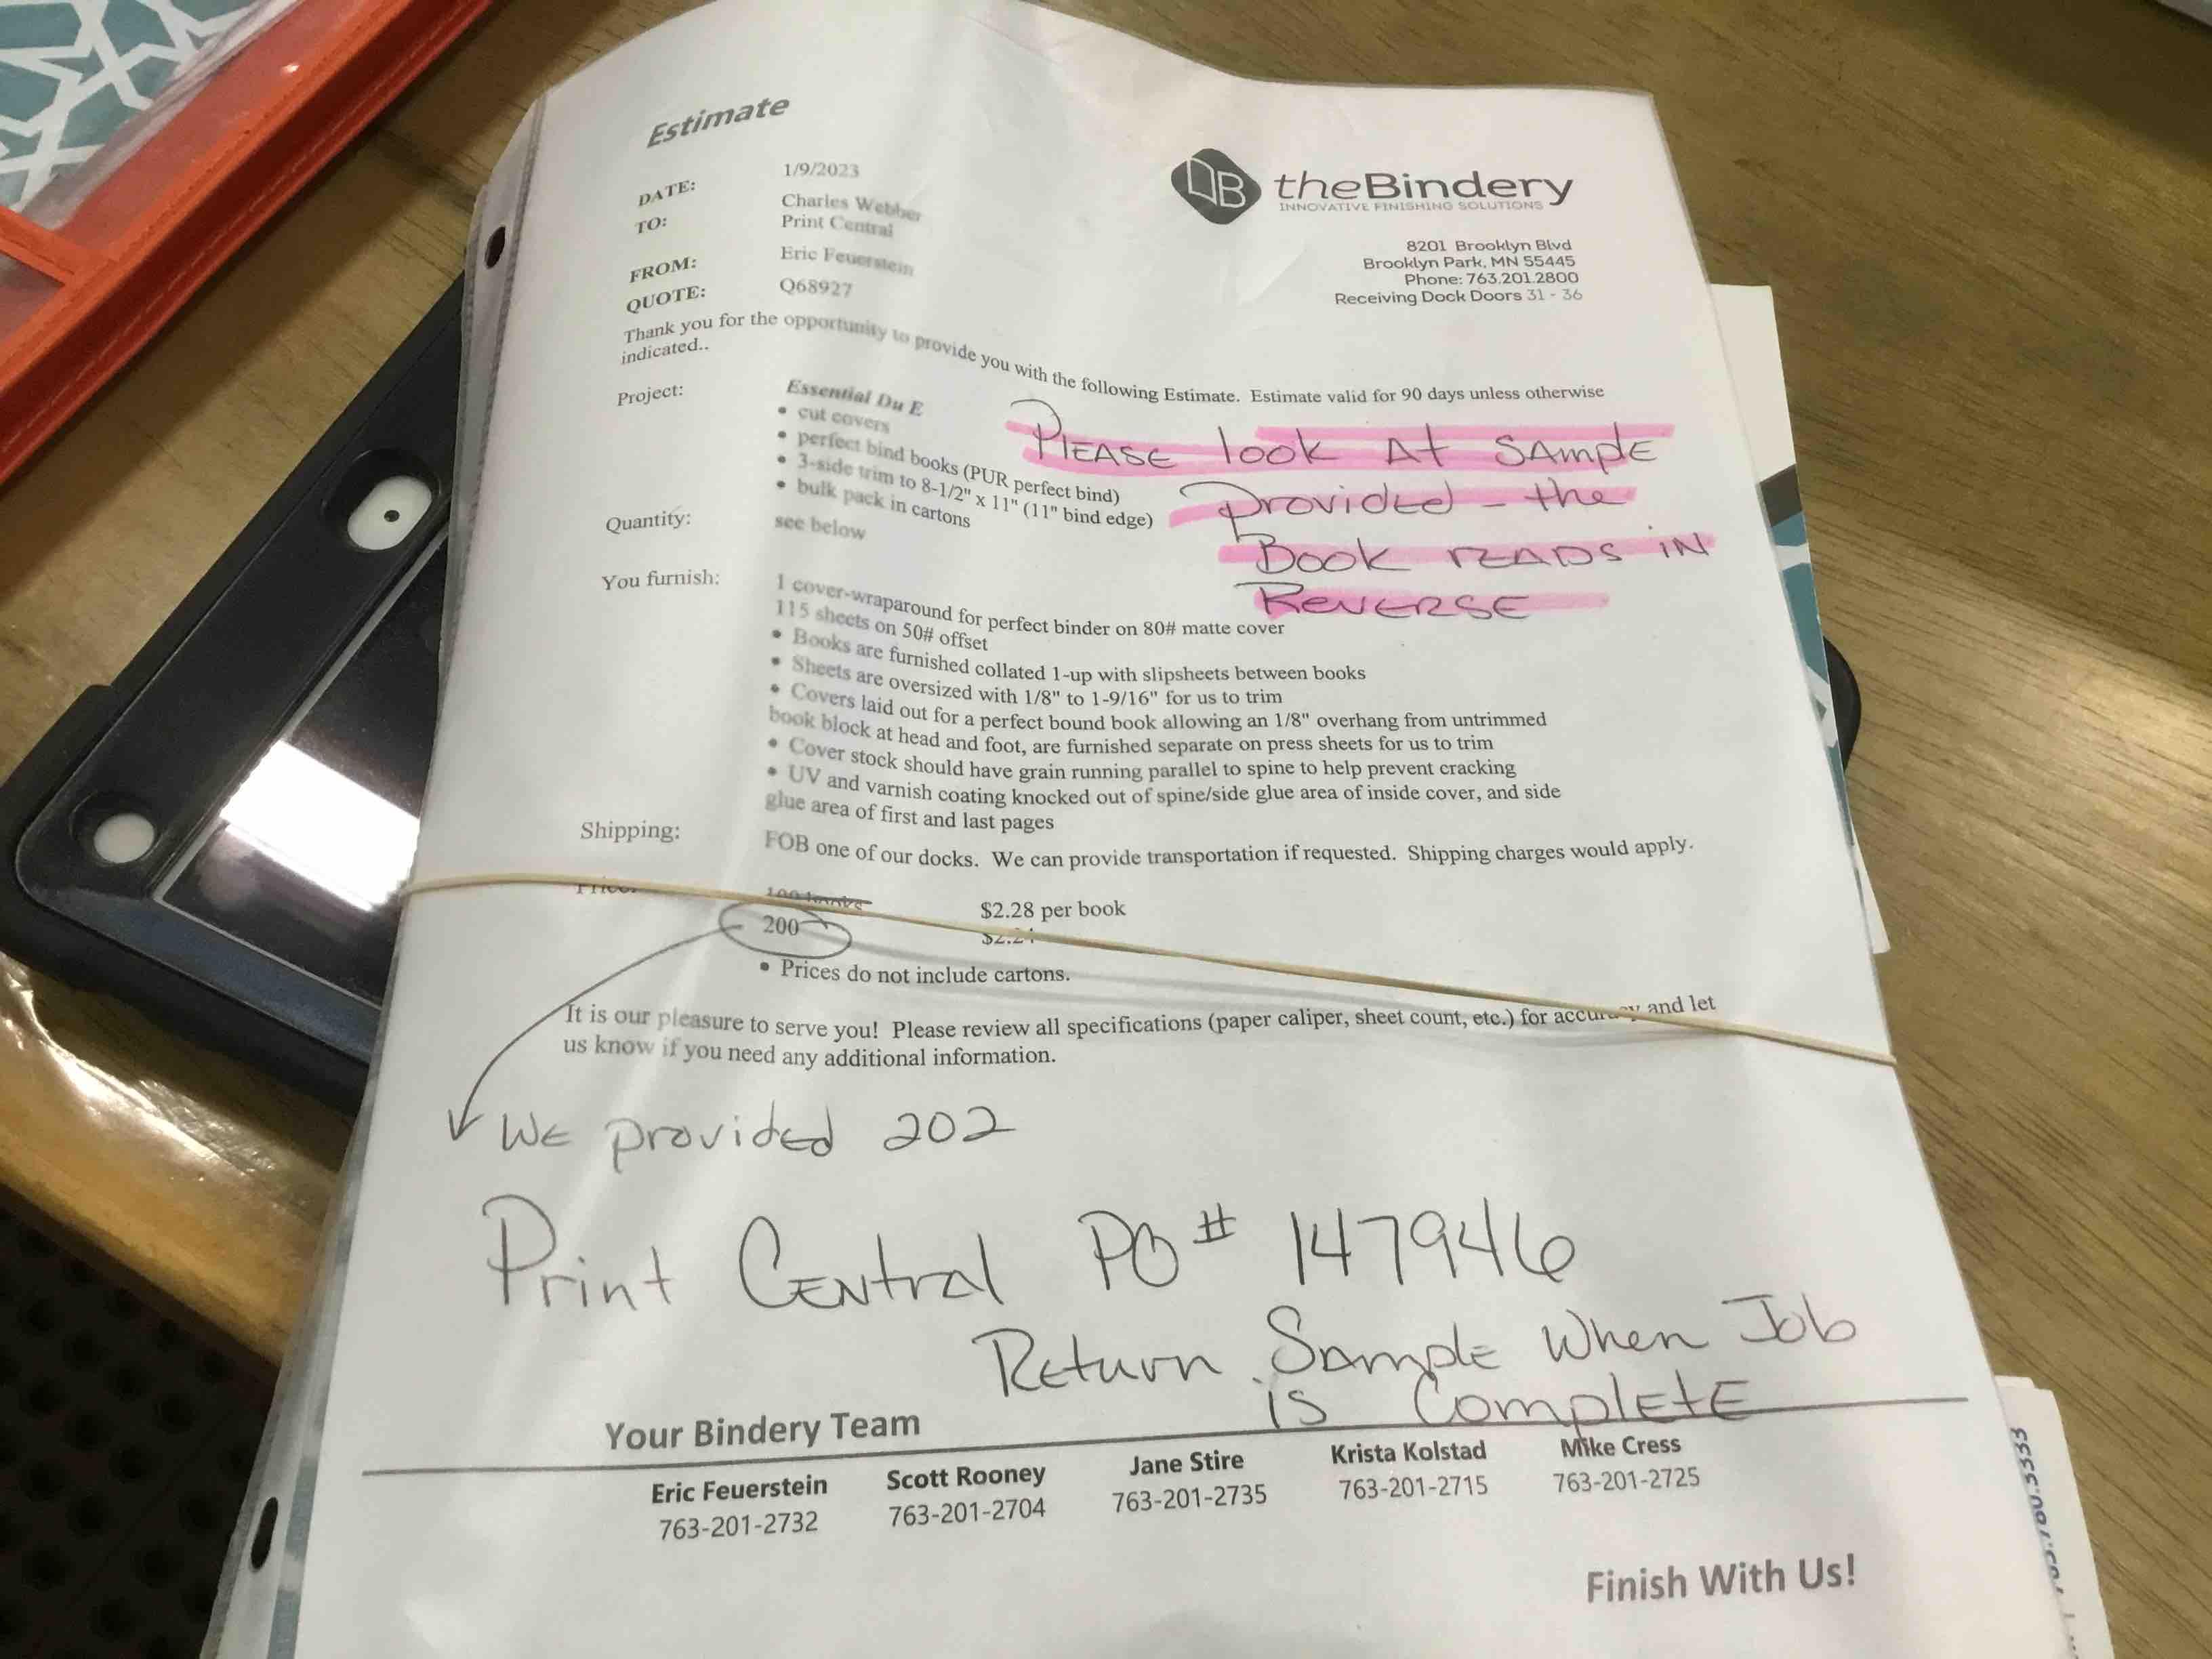 Estimate
theBindery
INNOVATIVE FINISHING SOLUTIONS
8201 Brooklyn Blvd
Brooklyn Park, MN 55445
Phone: 763.201.2800
Receiving Dock Doors 31 - 36
DATE: 1/9/2023
TO: Charles Webber
Print Central
FROM: Eric Feuerstein
QUOTE: Q68927
Thank you for the opportunity to provide you with the following Estimate. Estimate valid for 90 days unless otherwise
indicated..
Project: Essential Du E
• cut covers
• perfect bind books (PUR perfect bind)
• 3-side trim to 8-1/2" x 11" (11" bind edge)
• bulk pack in cartons
PLEASE look At SAmplE
provided - the
Book READS iN
REVERSE
Quantity: see below
You furnish: 1 cover-wraparound for perfect binder on 80# matte cover
115 sheets on 50# offset
• Books are furnished collated 1-up with slipsheets between books
• Sheets are oversized with 1/8" to 1-9/16" for us to trim
• Covers laid out for a perfect bound book allowing an 1/8" overhang from untrimmed
book block at head and foot, are furnished separate on press sheets for us to trim
• Cover stock should have grain running parallel to spine to help prevent cracking
• UV and varnish coating knocked out of spine/side glue area of inside cover, and side
glue area of first and last pages
Shipping: FOB one of our docks. We can provide transportation if requested. Shipping charges would apply.
Price: 100 books $2.28 per book
200
• Prices do not include cartons.
It is our pleasure to serve you! Please review all specifications (paper caliper, sheet count, etc.) for accuracy and let
us know if you need any additional information.
WE providEd 202
Print CENtral PO# 147946
REturn SAmplE When Job
is ComplEtE
Your Bindery Team
Eric Feuerstein Scott Rooney Jane Stire Krista Kolstad Mike Cress
763-201-2732 763-201-2704 763-201-2735 763-201-2715 763-201-2725
Finish With Us!